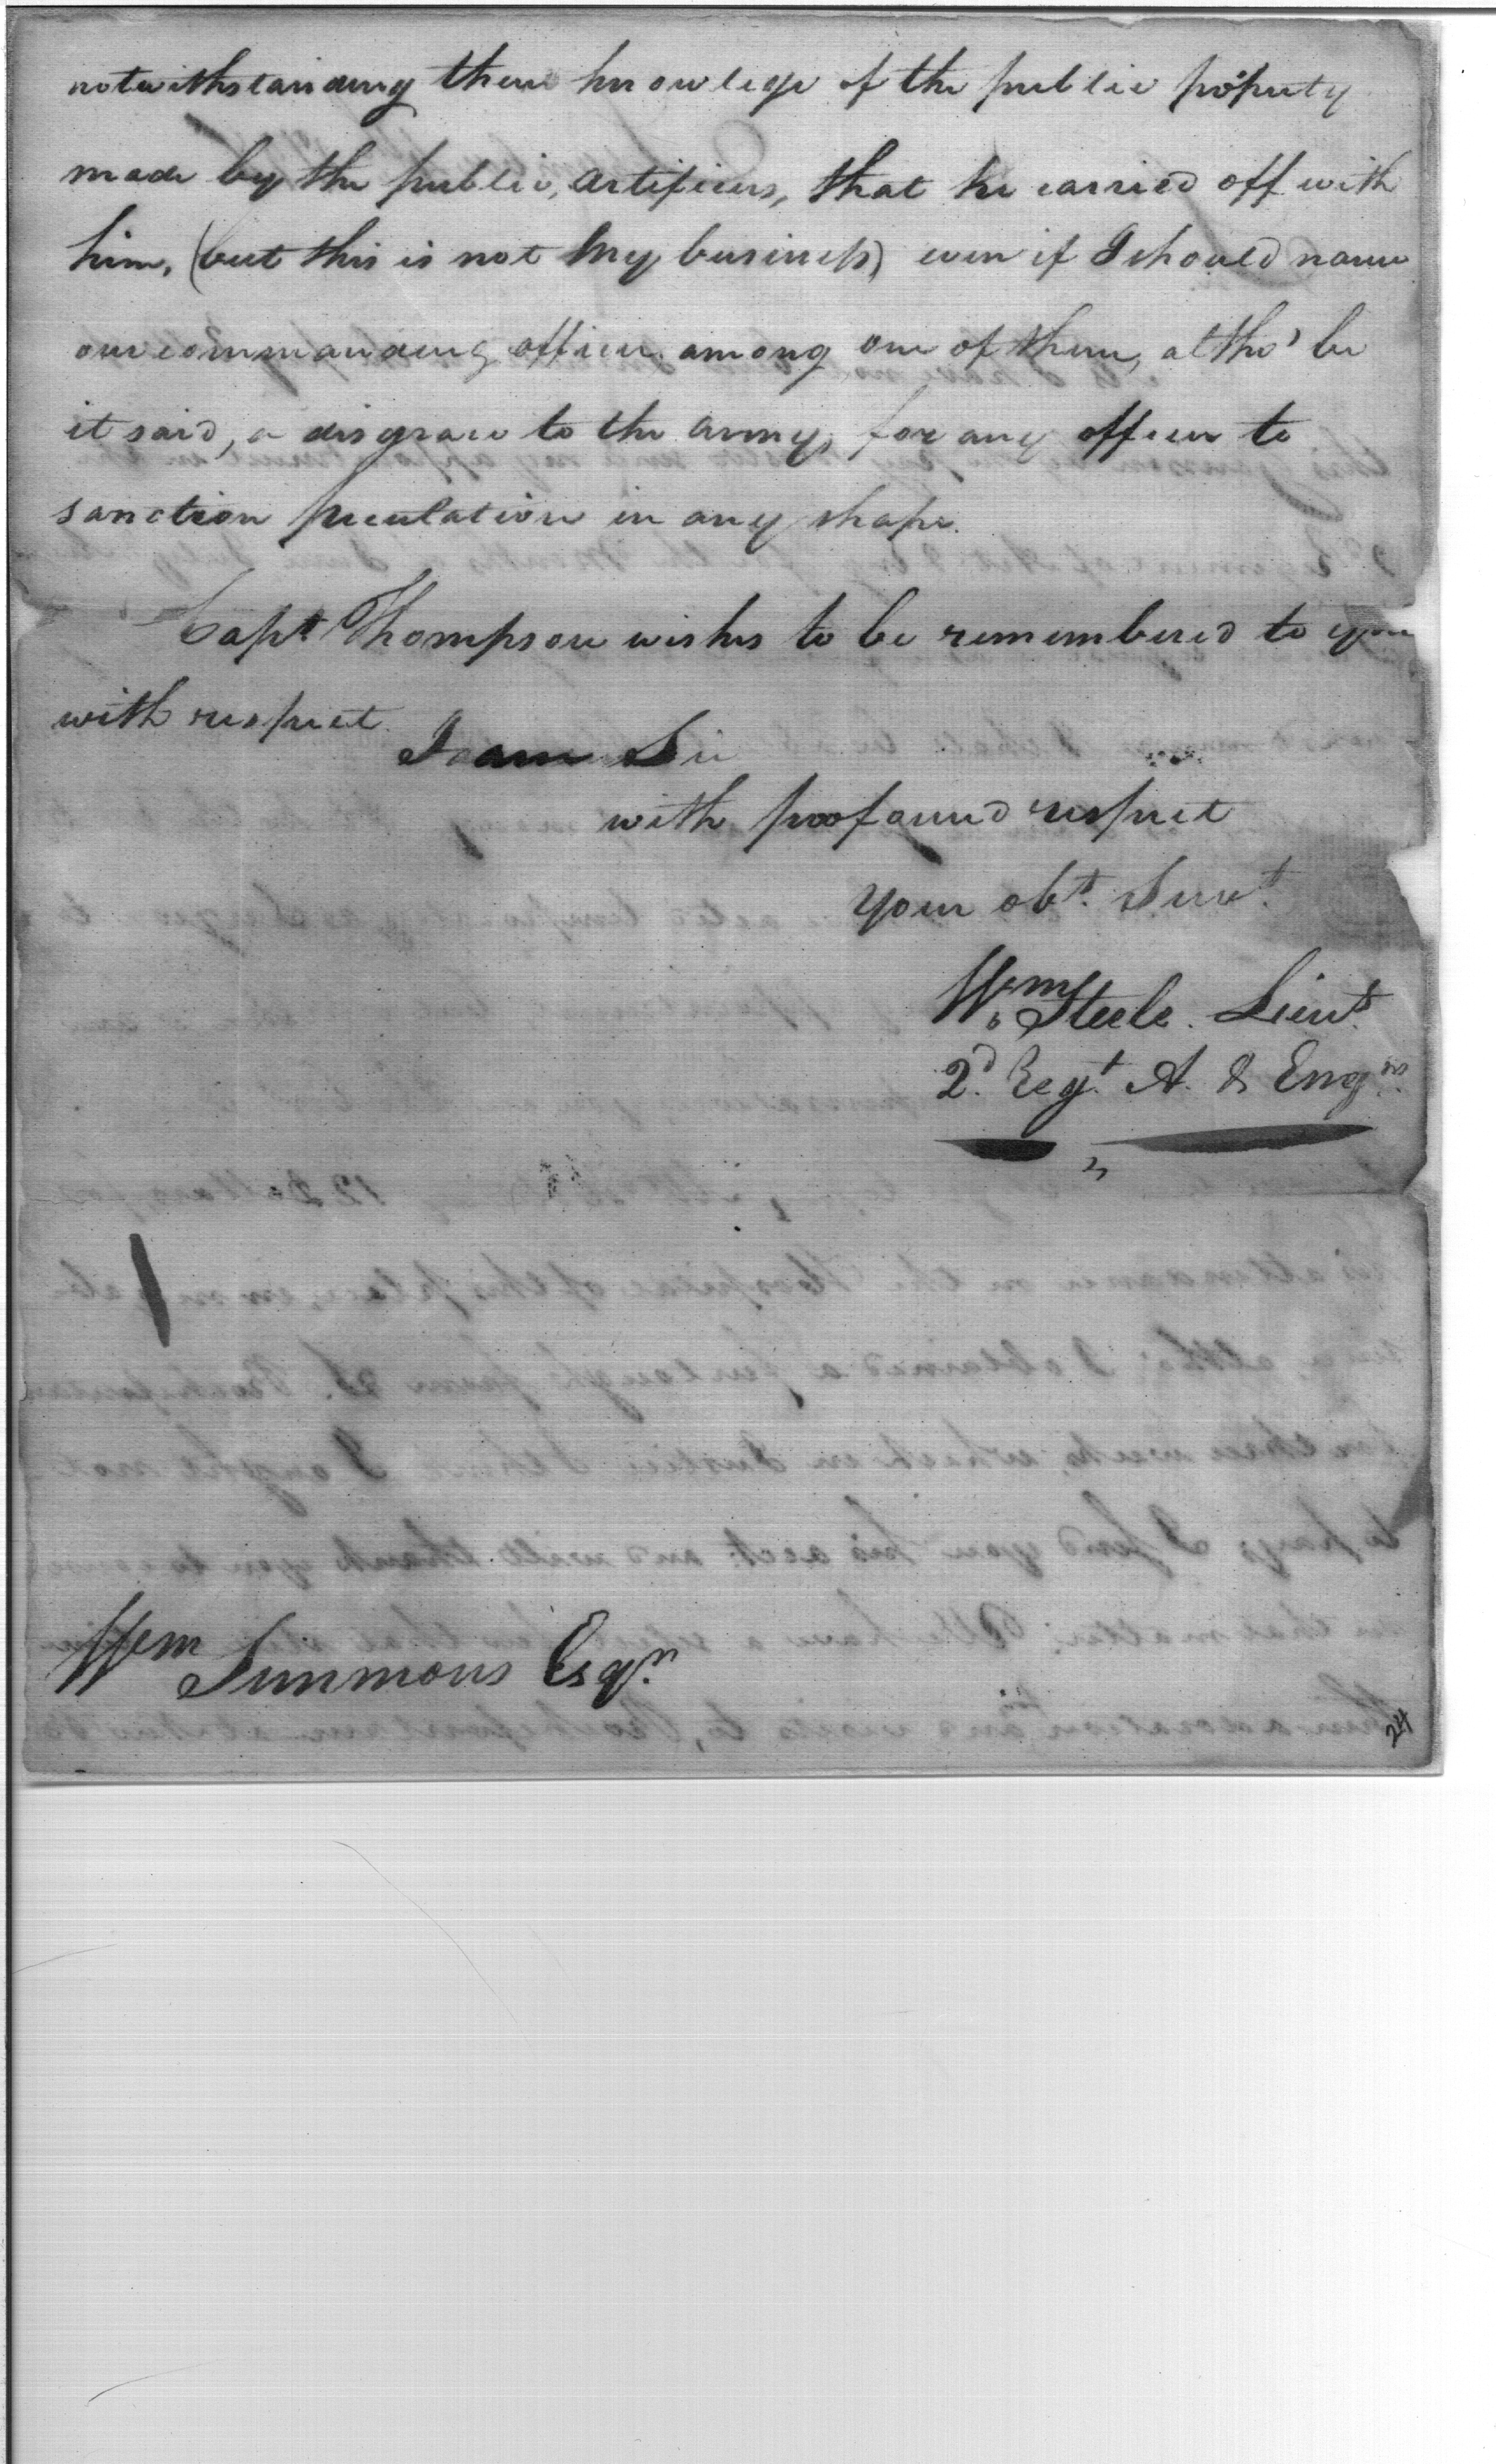 notwithstanding there knowlege of the public property
made by the public, artificers, that he carried off with
him, (but this is not My business) even if I should name
our commanding officer among one of them, altho' be
it said, a disgrace to the army, for any officer to
sanction peculation in any shape.
Capt. Thompson wishes to be remembered to you
with respect
I am Sir
with profound respect
Your obt. Servt.
Wm. Steele. Lieut.
2d. Regt. A. & Engrs.
Wm Simmons Esqr.
24